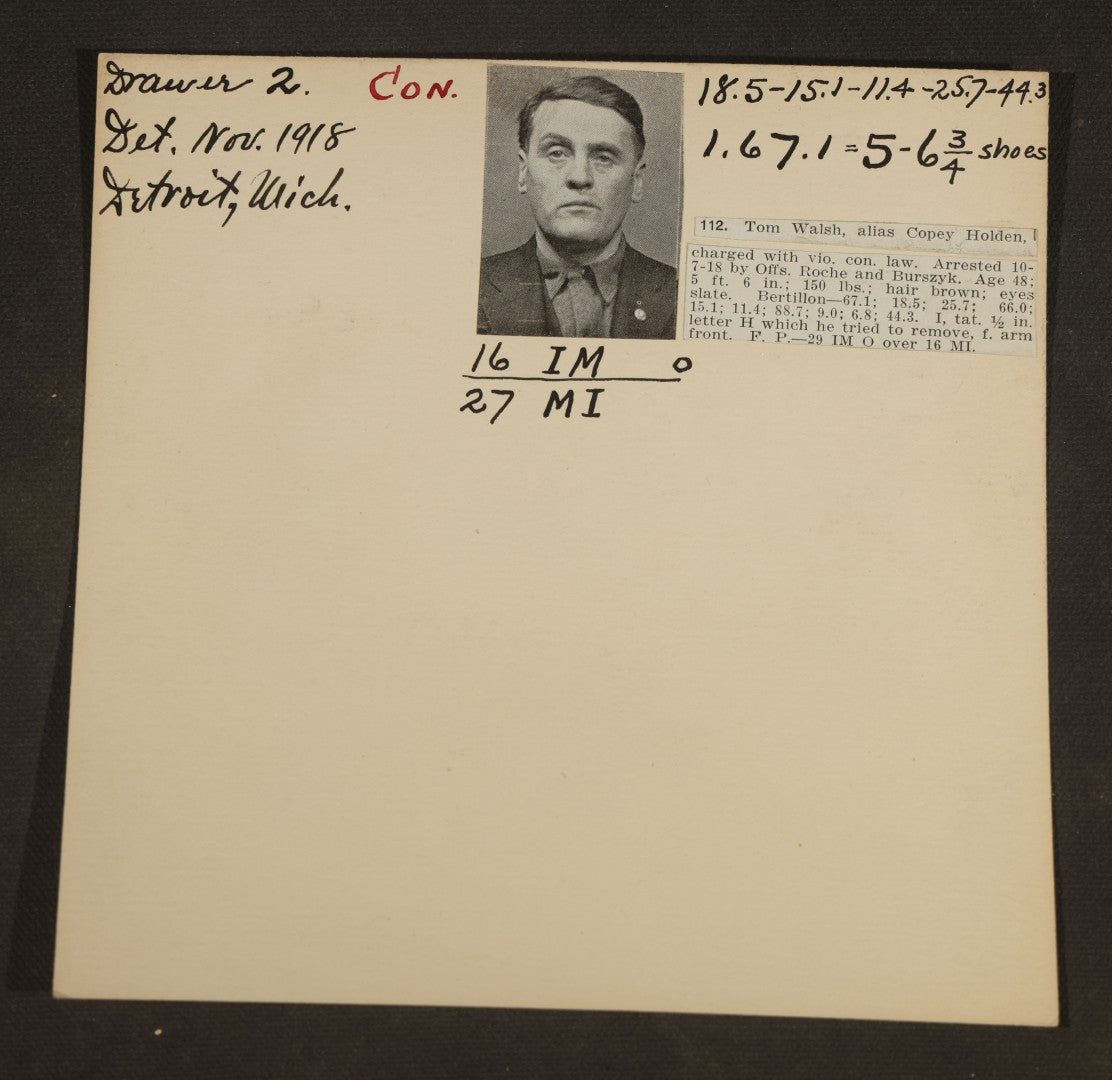 Drawer 2.
Con.
Det. Nov. 1918
Detroit, Mich.
18.5-15.1-11.4-25.7-44.3
1.67.1=5-6 3/4 shoes
112. Tom Walsh, alias Copey Holden,
charged with vio. con. law. Arrested 10-
7-18 by Offs. Roche and Burszyk. Age 48;
5 ft. 6 in.; 150 lbs.; hair brown; eyes
slate. Bertillon—67.1; 18.5; 25.7; 66.0;
15.1; 11.4; 88.7; 9.0; 6.8; 44.3. I, tat. ½ in.
letter H which he tried to remove, f. arm
front. F. P.—29 IM O over 16 MI.
16 IM O
27 MI